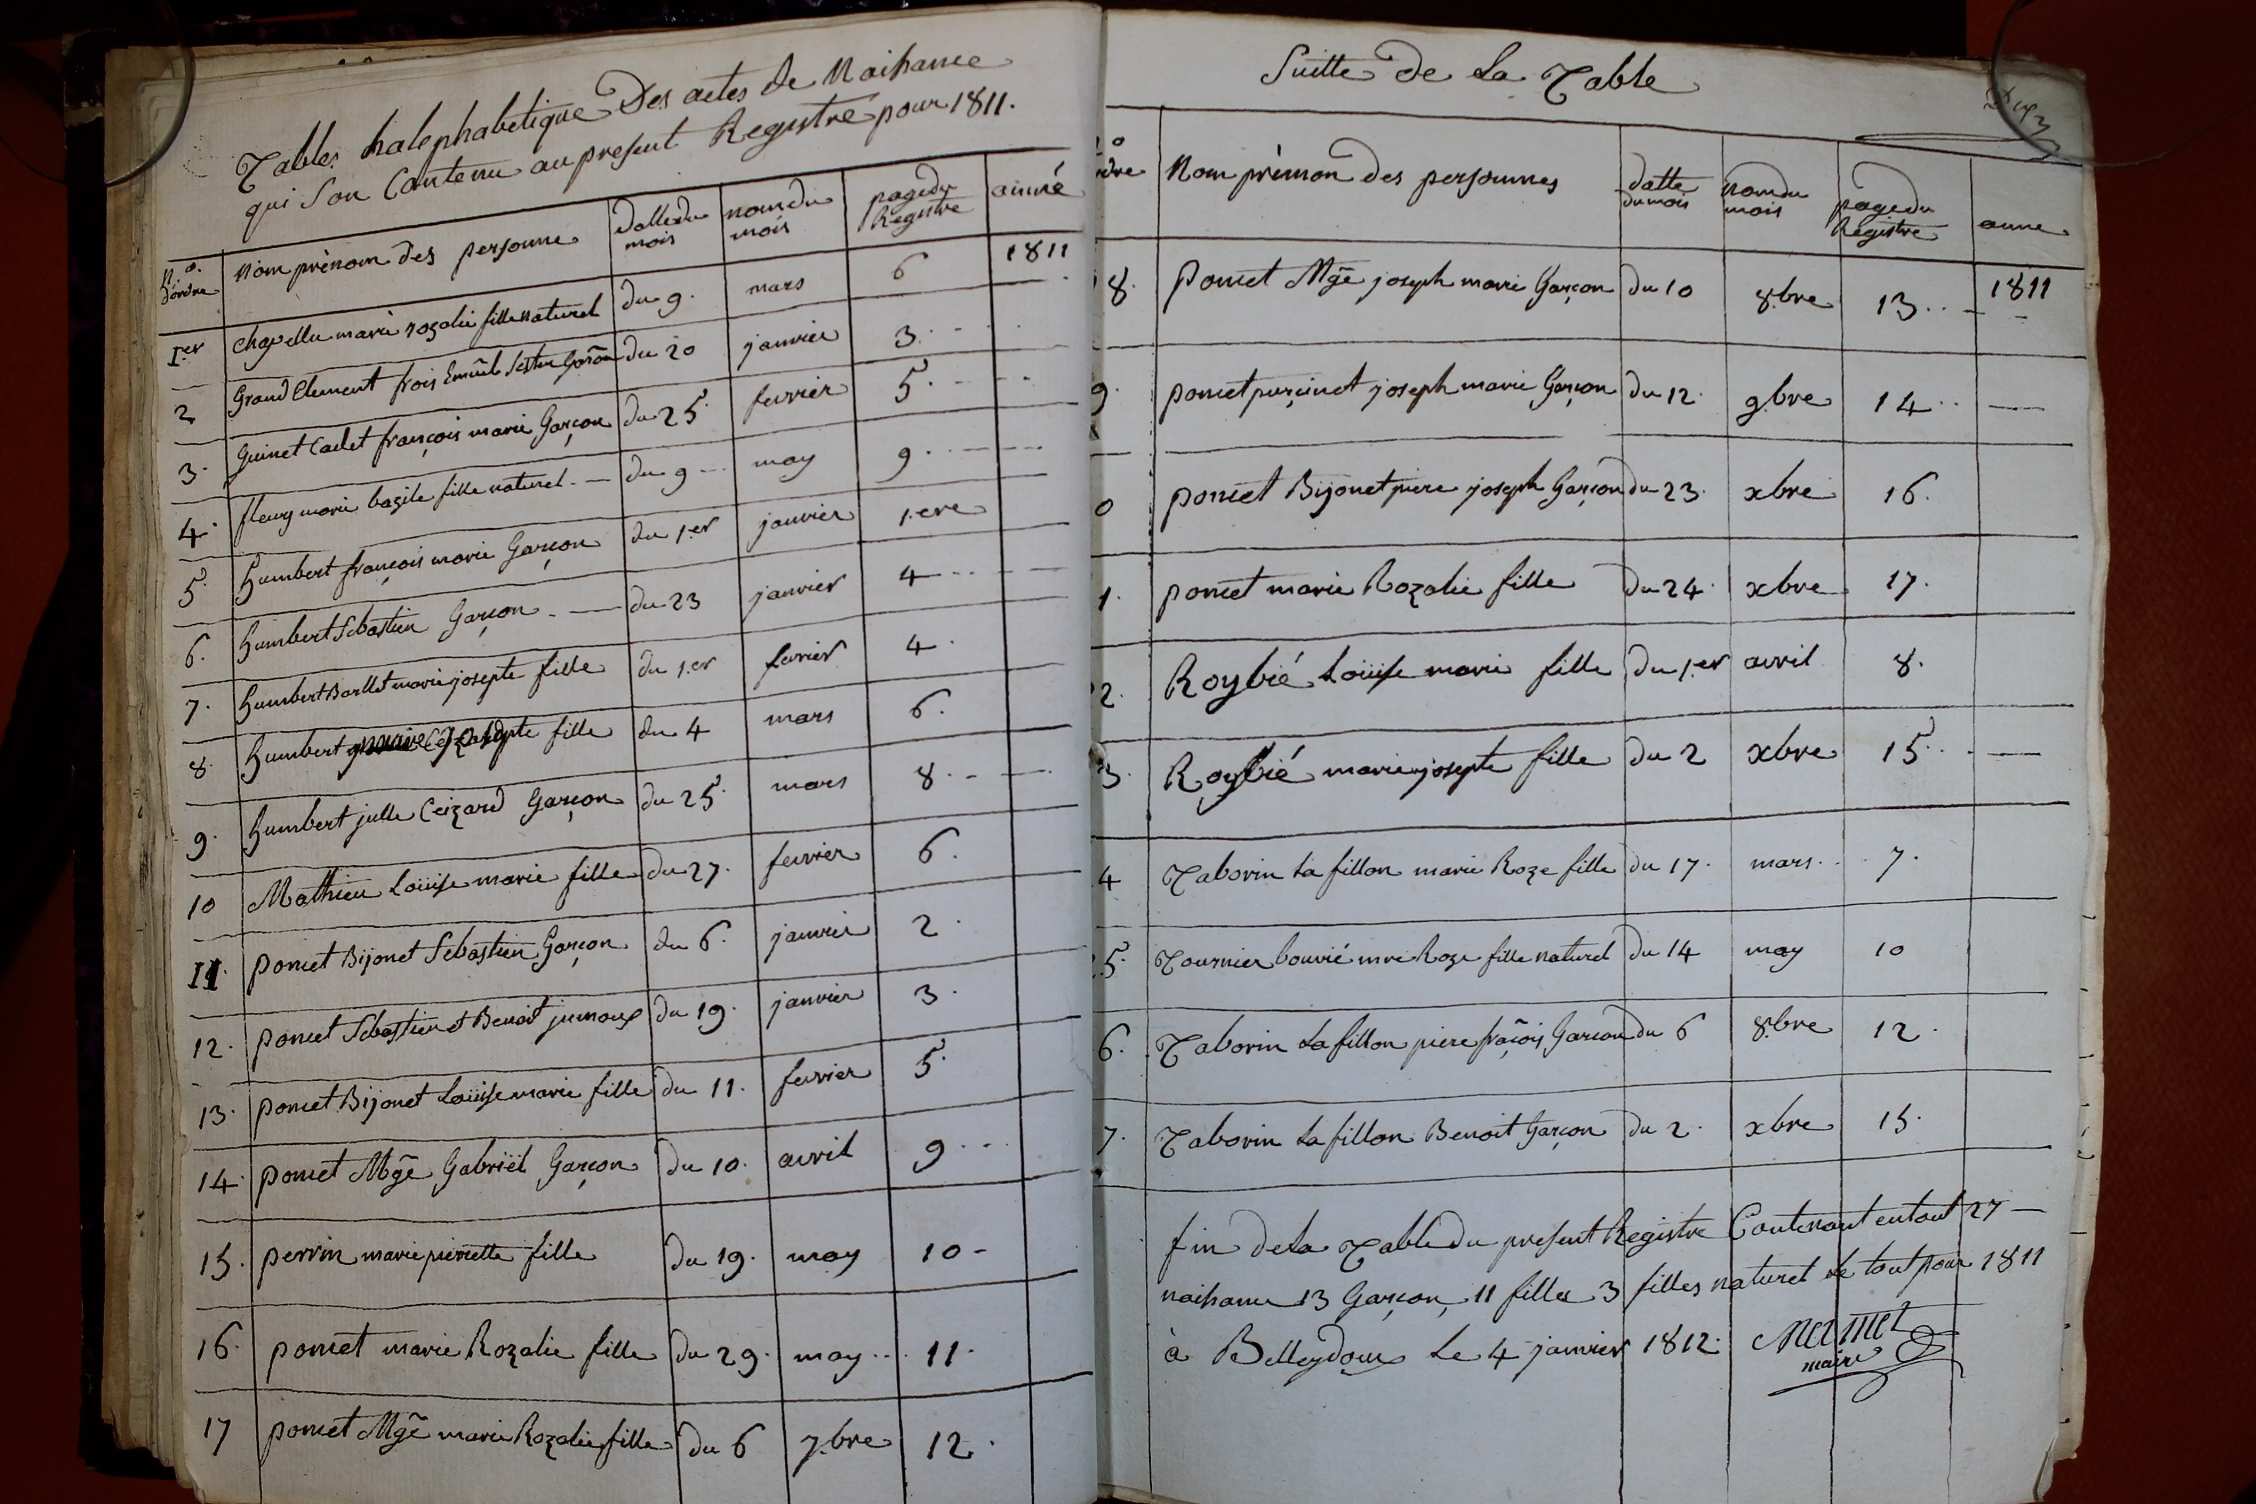 Tables halephabetique Des actes de Naihance
qui Son Contenu au present Registre pour 1811.
N.o D'ordre Nom prènom des personne Datte du mois nom du mois page du Registre anné
1.er Chapellu marie rozalie fille naturel du 9. mars 6 1811
2 Grand Clement frois Emül Sestin Garçon du 20 janvier 3.
3. Guinet Cadet françois marie Garçon du 25. fevrier 5.
4. fleury marie bazile fille naturel du 9 may 9.
5. humbert françois marie Garçon du 1.er janvier 1.ere
6. humbert Sebastien Garçon du 23 janvier 4
7. humbert Barllet marie josepte fille du 1.er fevrier 4.
8. humbert marie josepte fille du 4 mars 6.
9. humbert julle Ceizard Garçon du 25. mars 8.
10 Mathieu Loüise marie fille du 27. fevrier 6.
11. poncet Bijonet Sebastien Garçon du 6. janvier 2.
12. poncet Sebastien et Benoit jumoux du 19. janvier 3.
13. poncet Bijonet Loüise marie fille du 11. fevrier 5.
14. poncet Mgẽ Gabriël Garçon du 10. avril 9.
15. perrin marie pierrette fille du 19. may 10 -
16. poncet marie Rozalie fille du 29. may 11.
17 poncet Mgẽ marie Rozalie fille du 6 7.bre 12.
Suitte de La Table
ordre Nom prènom des personnes datte du mois nom du mois page du Registre anne
8. poncet Mgẽ joseph marie Garçon du 10 8.bre 13 1811
9. poncet purçinet joseph marie Garçon du 12. 9.bre 14
0 poncet Bijonet piere joseph Garçon du 23. xbre 16.
1. poncet marie Rozalie fille du 24. xbre 17.
2. Roybié Loüise marie fille du 1.er avril 8.
3. Roybié marie josepte fille du 2 xbre 15.
4 Taborin La fillon marie Roze fille du 17. mars 7.
5. Tournier bouvié mrie Roze fille naturel du 14 may 10
6. Taborin La fillon piere frãçois Garçon du 6 8.bre 12.
7. Taborin La fillon Benoit Garçon du 2. xbre 15.
fin de La Table du present Registre Contenant entout 27
naihance 13 Garçon, 11 filles 3 filles naturel le tout pour 1811
à Belleydoux Le 4 janvier 1812.
maire